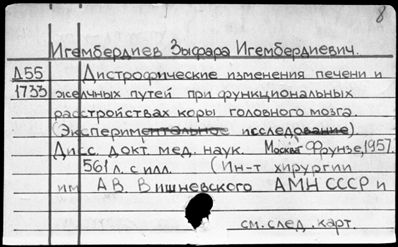 8
Игембердиев Зыфара Игембердиевич.
Д55 Дистрофические изменения печени и
1733 желчных путей при функциональных
расстройствах коры головного мозга.
(Экспериментальное исследование)
Дисс. докт. мед. наук. Москва Фрунзе, 1957.
561 л. с илл. (Ин-т хирургии
им А.В. Вишневского АМН СССР и
см. след. карт.